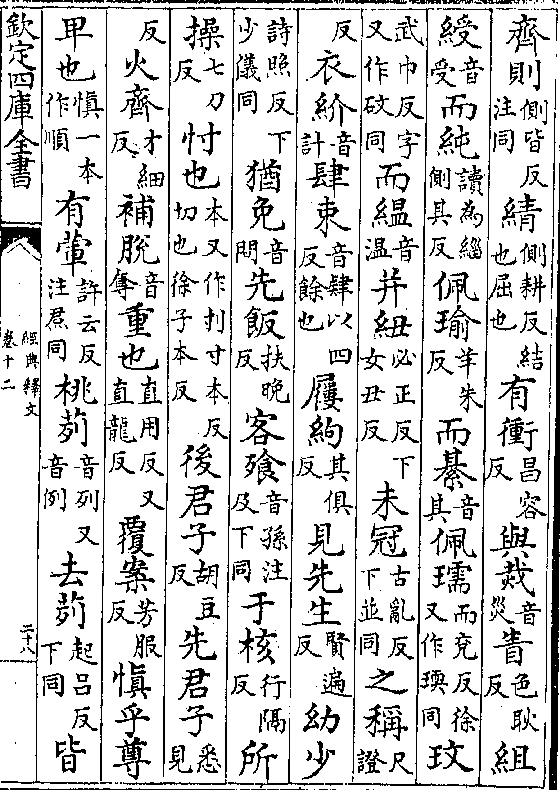 齊則側皆反注同綪側耕反結也屈也有衝昌容反與烖音災眚色耿反組
綬音受而純讀為緇側其反佩瑜羊朱反而綦音其佩瓀而兖反徐又作瑌同玟
武巾反字又作砇同而縕音溫并紐必正反下女丑反未冠古亂反下並同之稱尺證
反衣紒音計肆束音肄以四反餘也屨絇其俱反見先生賢遍反幼少
詩照反下少儀同猶免音問先飯扶晚反客飱音孫注及下同于核行隔反所
操七刀反忖也本又作刌寸本反切也徐子本反後君子胡豆反先君子悉見
反火齊才細反補脫音奪重也直用反又直龍反覆案芳服反慎乎尊
甲也慎一本作順有葷許云反注焄同桃茢音列又音例去茢起呂反下同皆
欽定四庫全書
經典釋文
卷十二
二十八